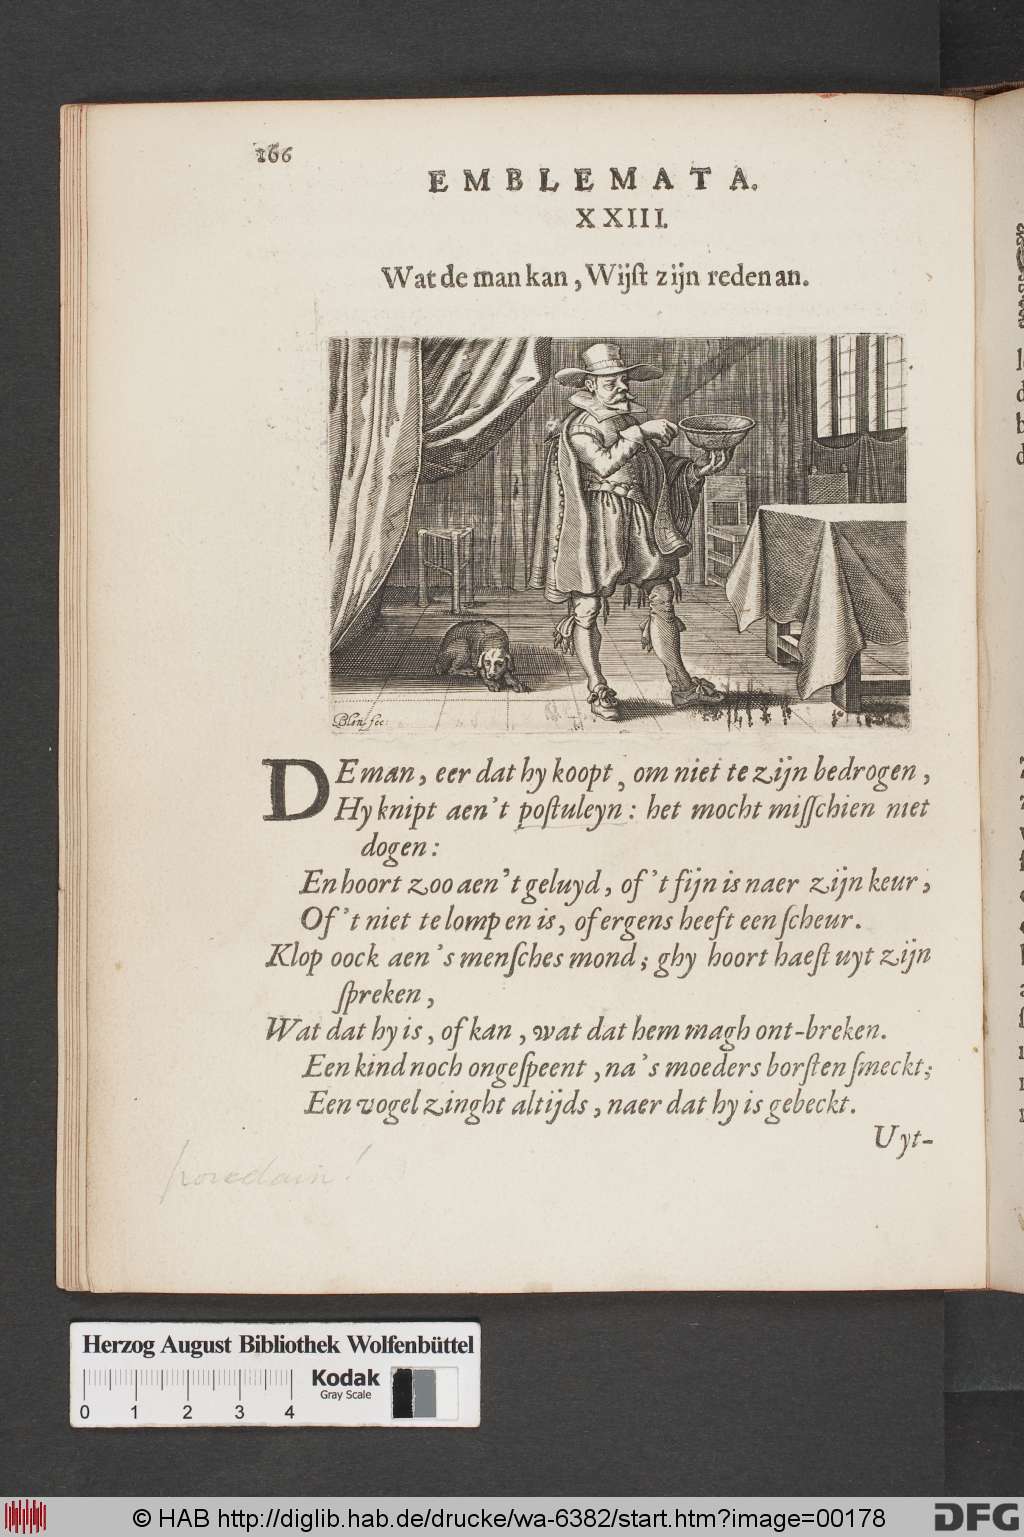 166
EMBLEMATA.
XXIII.
Wat de man kan, Wijſt zijn reden an.
Blon. fec
DE man, eer dat hy koopt, om niet te zijn bedrogen,
Hy knipt aen't poſtuleyn: het mocht miſſchien niet
dogen:
En hoort zoo aen't geluyd, of 't fijn is naer zijn keur,
Of 't niet te lomp en is, of ergens heeft een ſcheur.
Klop oock aen 's menſches mond; ghy hoort haeſt uyt zijn
ſpreken,
Wat dat hy is, of kan, wat dat hem magh ont-breken.
Een kind noch ongeſpeent, na 's moeders borſten ſmeckt;
Een vogel zinght altijds, naer dat hy is gebeckt.
Uyt-
porcelain!
Herzog August Bibliothek Wolfenbüttel
Kodak
Gray Scale
0 1 2 3 4
© HAB http://diglib.hab.de/drucke/wa-6382/start.htm?image=00178
DFG